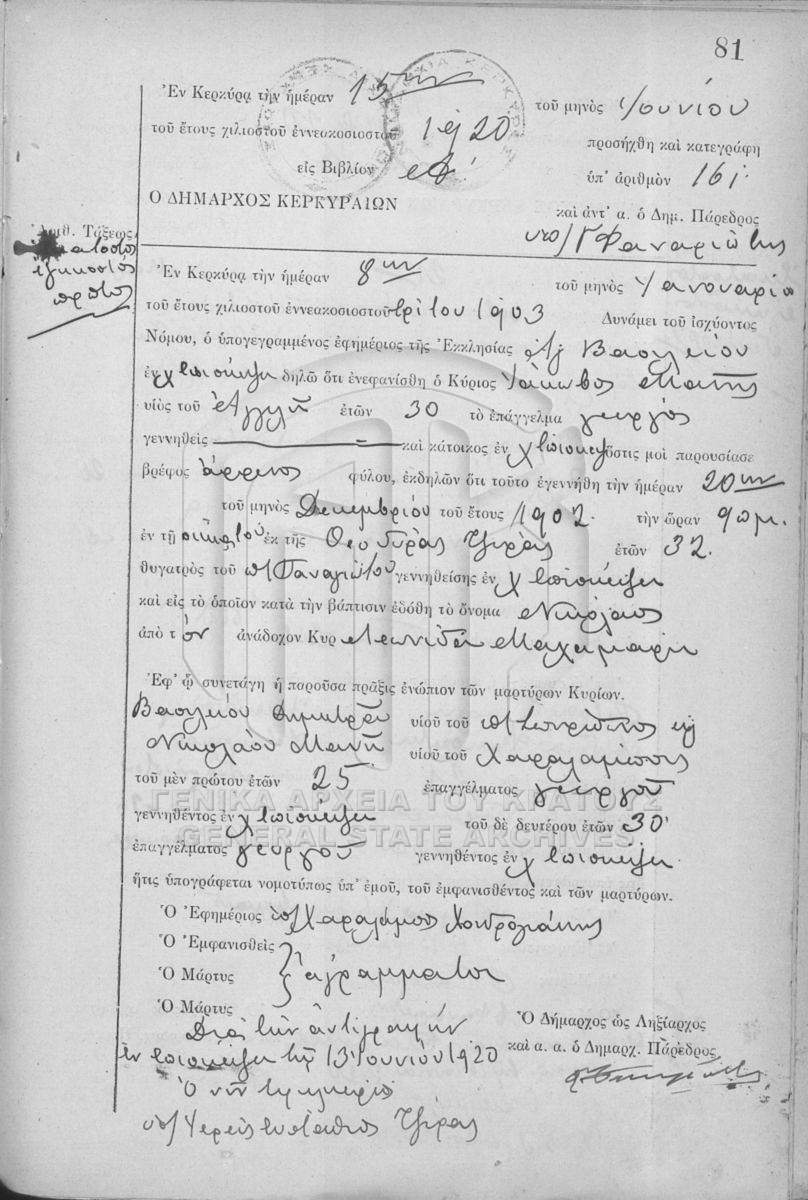 81
Ἐν Κερκύρᾳ τὴν ἡμέραν 15ην τοῦ μηνὸς Ἰουνίου
τοῦ ἔτους χιλιοστοῦ ἐννεακοσιοστοῦ 1920 προσήχθη καὶ κατεγράφη
εἰς Βιβλίον ὑπ' ἀριθμὸν 161
Ο ΔΗΜΑΡΧΟΣ ΚΕΡΚΥΡΑΙΩΝ
καὶ ἀντ' α. ὁ Δημ. Πάρεδρος
Φαναριώτης
Ἀριθ. Τάξεως
πρῶτος
Ἐν Κερκύρᾳ τὴν ἡμέραν 8ην τοῦ μηνὸς Ἰανουαρίου
τοῦ ἔτους χιλιοστοῦ ἐννεακοσιοστοῦ τρίτου 1903 Δυνάμει τοῦ ἰσχύοντος
Νόμου, ὁ ὑπογεγραμμένος ἐφημέριος τῆς Ἐκκλησίας Ἁγ Βασιλείου
ἐν χ Ἐπισκέψει δηλῶ ὅτι ἐνεφανίσθη ὁ Κύριος Ἰάκωβος Μάνης
υἱὸς τοῦ Ἀγγελῆ ἐτῶν 30 τὸ ἐπάγγελμα γεωργὸς
γεννηθεὶς καὶ κάτοικος ἐν χ Ἐπισκέψει ὅστις μοὶ παρουσίασε
βρέφος ἄρρενος φύλου, ἐκδηλῶν ὅτι τοῦτο ἐγεννήθη τὴν ἡμέραν 20ην
τοῦ μηνὸς Δεκεμβρίου τοῦ ἔτους 1902 τὴν ὥραν 9 πμ.
ἐν τῇ οἰκίᾳ του ἐκ τῆς Θεοδώρας Τζιρᾶς ἐτῶν 32.
θυγατρὸς τοῦ Παναγιώτου γεννηθείσης ἐν χ Ἐπισκέψει
καὶ εἰς τὸ ὁποῖον κατὰ τὴν βάπτισιν ἐδόθη τὸ ὄνομα Νικόλαος
ἀπὸ τὸν ἀνάδοχον Κυρ Λεωνίδα
Ἐφ' ᾧ συνετάγη ἡ παροῦσα πρᾶξις ἐνώπιον τῶν μαρτύρων Κυρίων.
Βασιλείου υἱοῦ τοῦ Σπυρίδωνος
Νικολάου Μάνη υἱοῦ τοῦ Χαραλάμπους
τοῦ μὲν πρώτου ἐτῶν 25 ἐπαγγέλματος γεωργοῦ
ΓΕΝΙΚΑ ΑΡΧΕΙΑ ΤΟΥ ΚΡΑΤΟΥΣ
γεννηθέντος ἐν χ Ἐπισκέψει τοῦ δὲ δευτέρου ἐτῶν 30
GENERAL STATE ARCHIVES
ἐπαγγέλματος γεωργοῦ γεννηθέντος ἐν χ Ἐπισκέψει
ἥτις ὑπογράφεται νομοτύπως ὑπ' ἐμοῦ, τοῦ ἐμφανισθέντος καὶ τῶν μαρτύρων.
Ὁ Ἐφημέριος Χαράλαμπος Χονδρογιάννης
Ὁ Ἐμφανισθεὶς
Ὁ Μάρτυς ἀγράμματοι
Ὁ Μάρτυς
Διὰ τὴν ἀντιγραφήν
Ὁ Δήμαρχος ὡς Ληξίαρχος
Ἐν Ἐπισκέψει τῇ 13 Ἰουνίου 1920
καὶ α. α. ὁ Δημαρχ. Πάρεδρος
Ὁ νῦν ἐφημέριος
Ἱερεὺς Εὐστάθιος Τζίρας